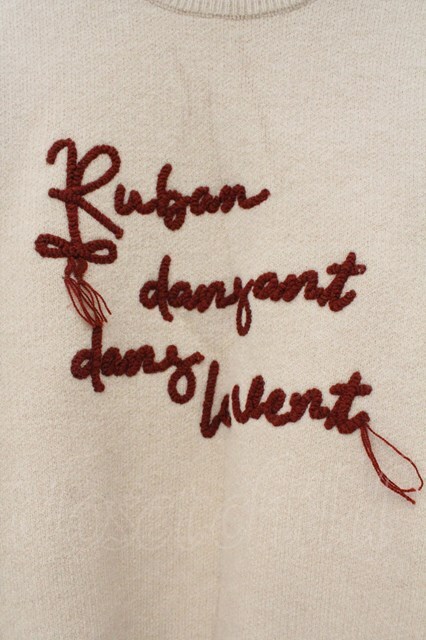 Ruban
dansant
dans
le vent